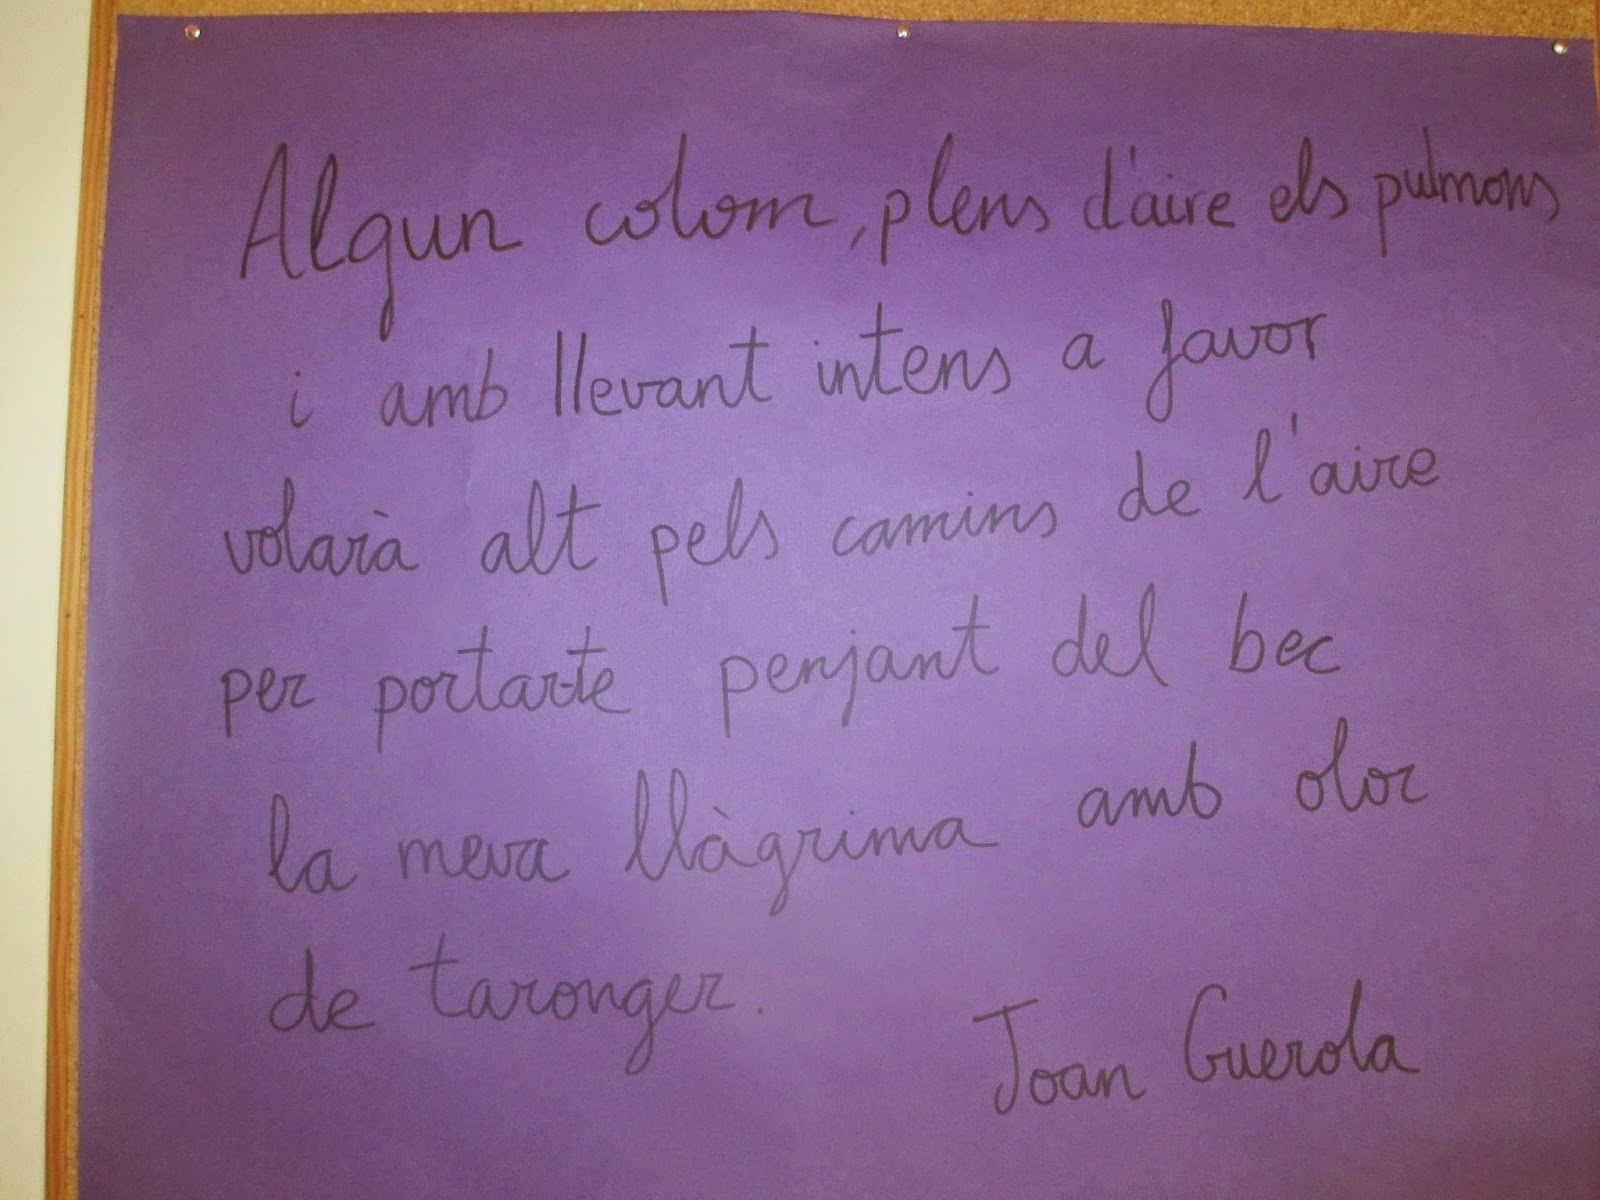 Algun colom, plens d'aire els pulmons
i amb llevant intens a favor
volarà alt pels camins de l'aire
per portar-te penjant del bec
la meva llàgrima amb olor
de taronger.
Joan Guerola